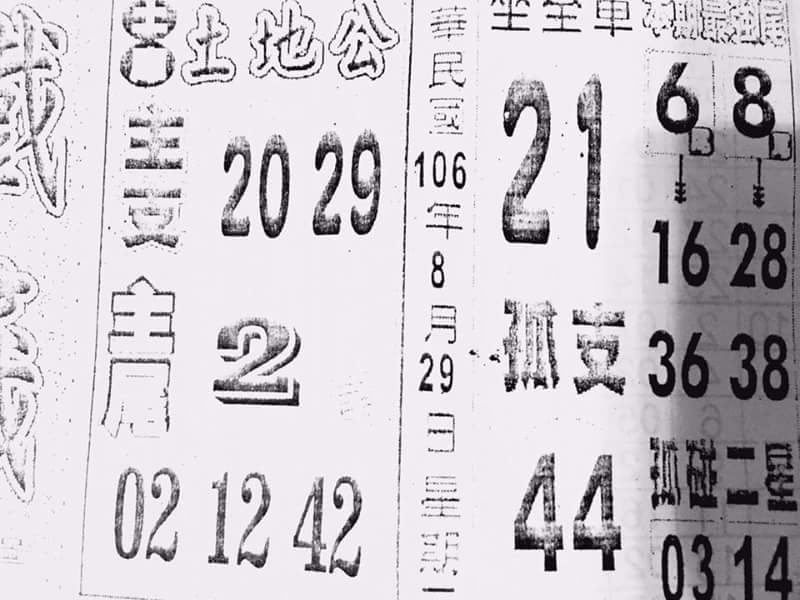 土地公
主支
20 29
主尾
2
02 12 42
華民國106年8月29日星期二
坐全車
21
孤支
44
本期最強尾
6 8
16 28
36 38
孤碰二組
03 14